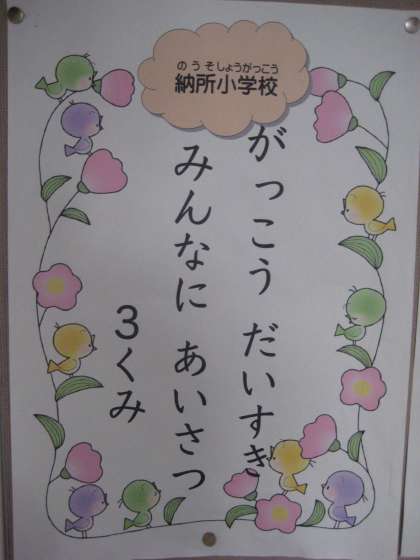 のうそしょうがっこう
納所小学校
がっこう だいすき
みんなに あいさつ
3くみ